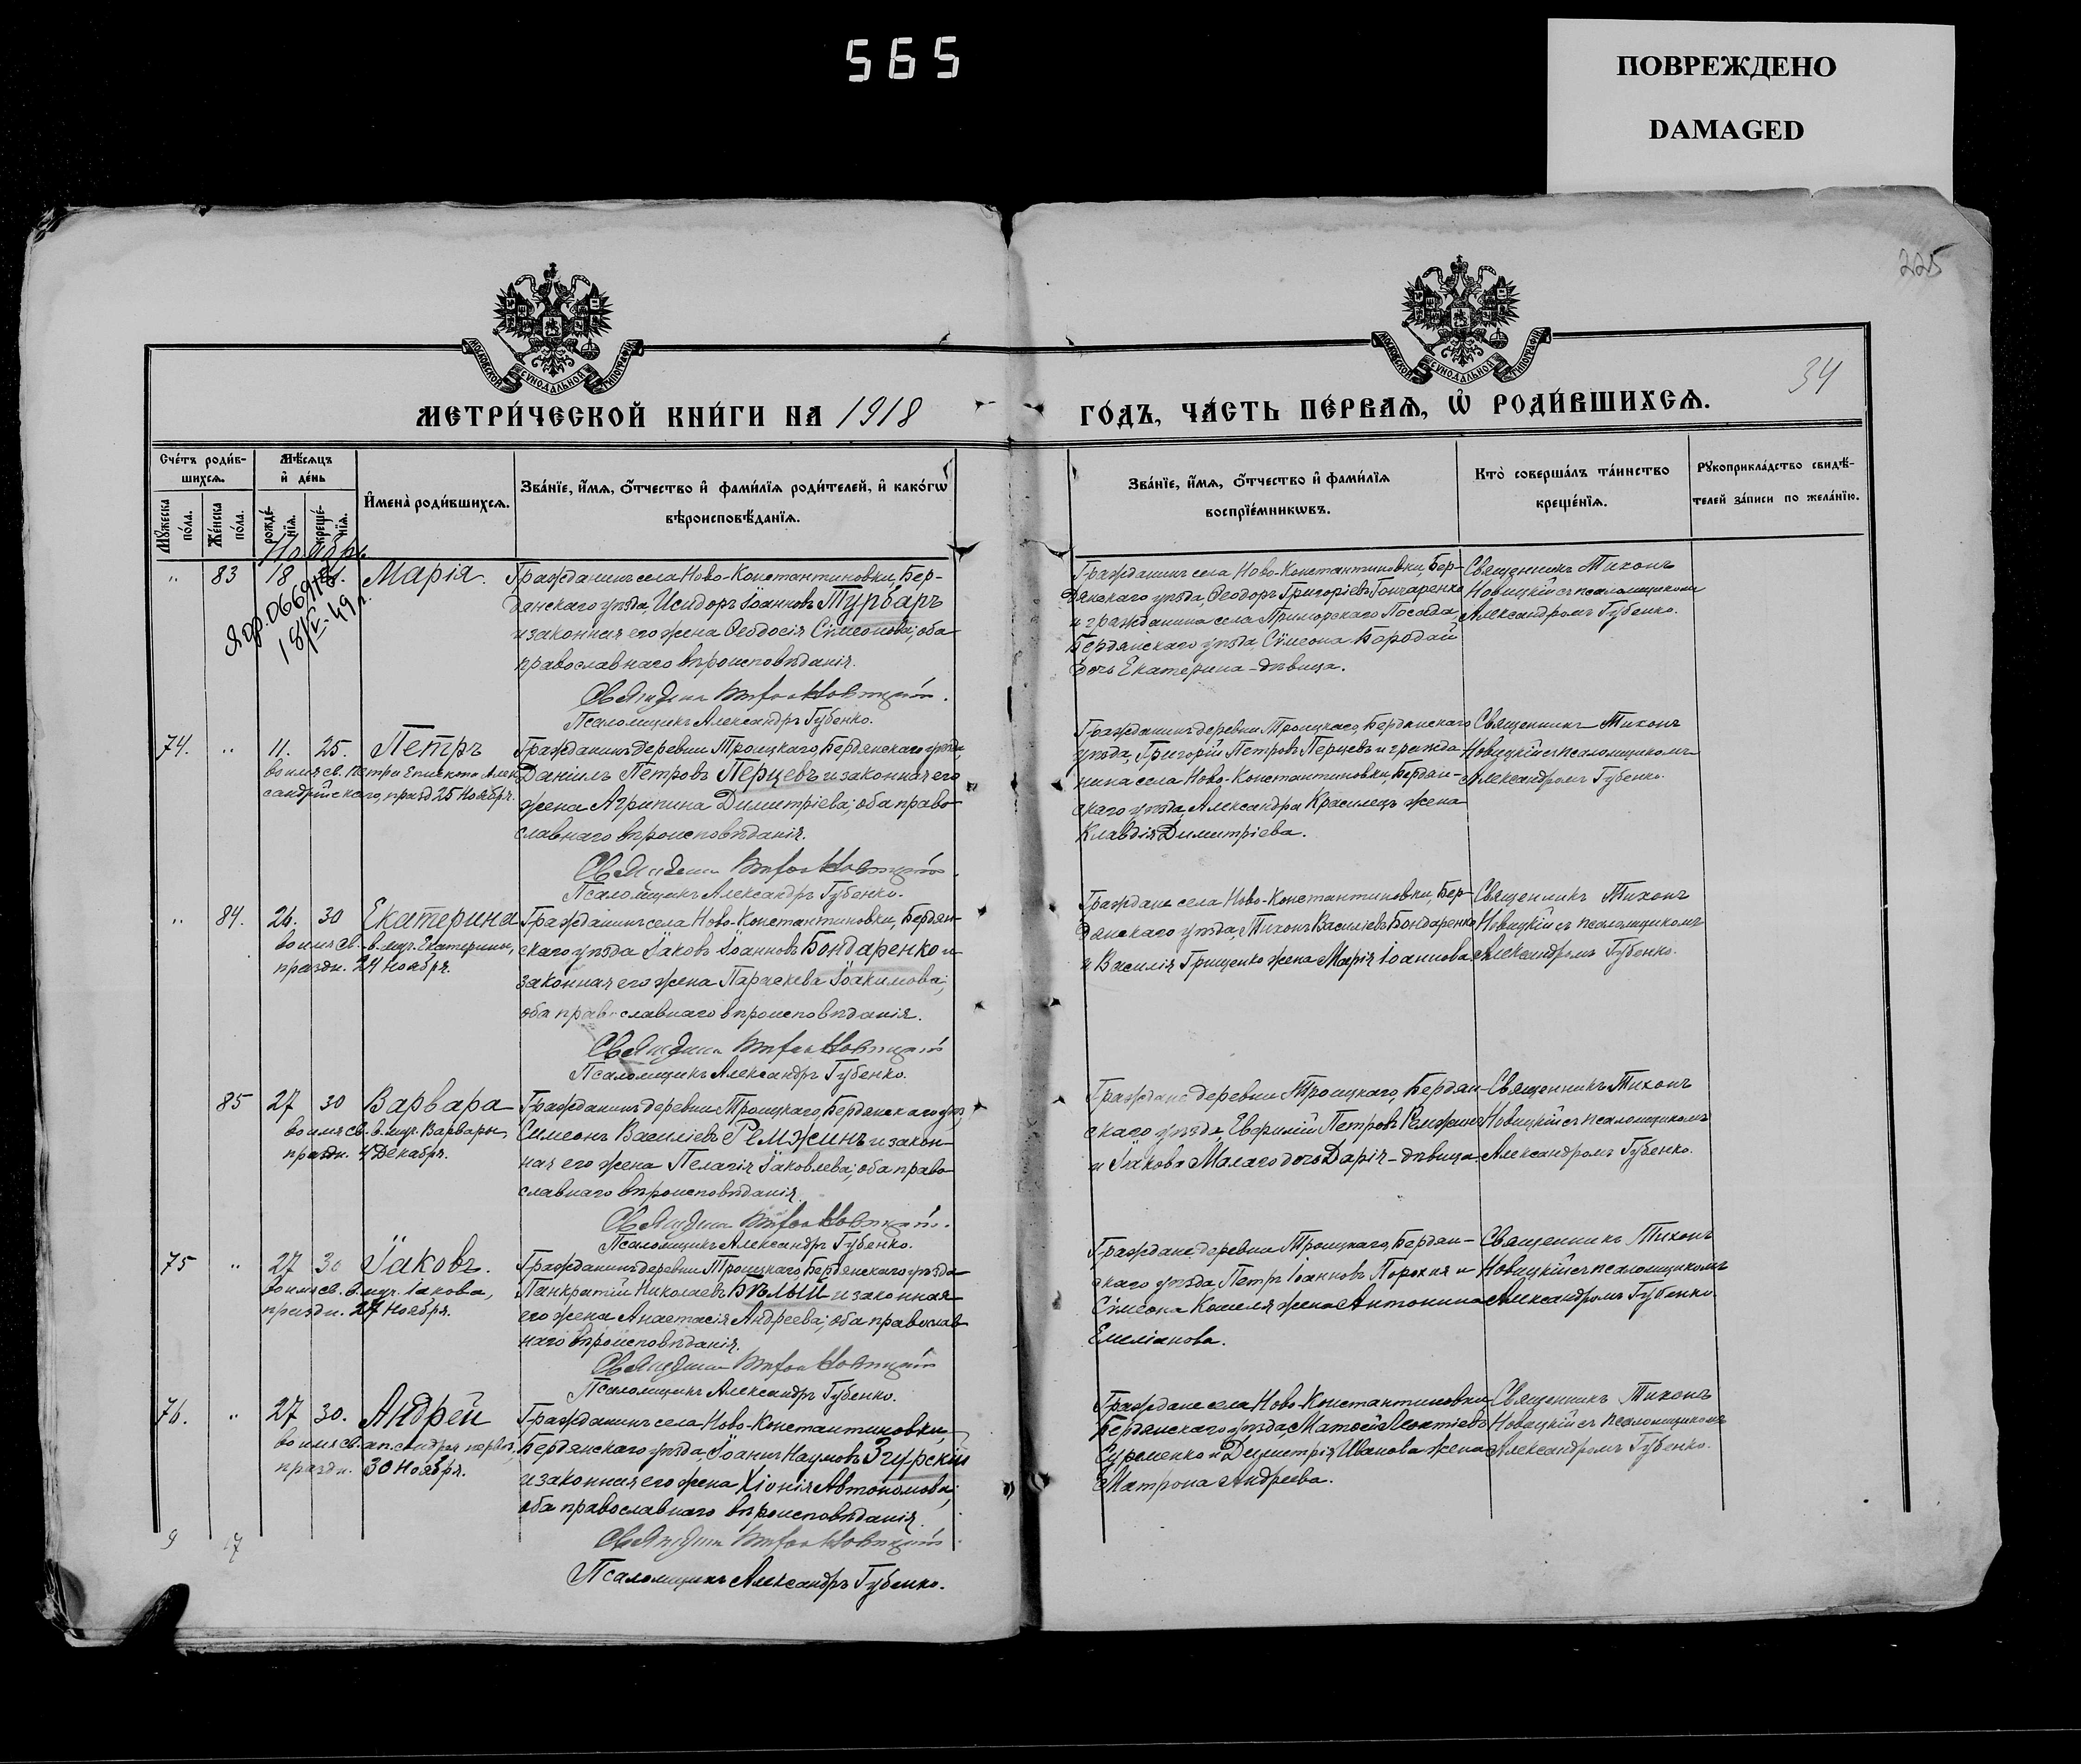 565
ПОВРЕЖДЕНО
DAMAGED
225
34
МОСКОВСКОЙ СѴНОДАЛЬНОЙ ТИПОГРАФІИ
МОСКОВСКОЙ СѴНОДАЛЬНОЙ ТИПОГРАФІИ
МЕТРИ́ЧЕСКОЙ КНИ́ГИ НА 1918
ГО́ДЪ, ЧА́СТЬ ПЕ́РВАѦ, Ѡ҆ РОДИ́ВШИХСѦ.
Сче́тъ роди́в-
шихсѧ.
Мꙋ́жеска по́ла.
Же́нска по́ла.
Мѣ́сѧцъ
и҆ де́нь
рожде́-
нїѧ.
креще́-
нїѧ.
И҆мена̀ роди́вшихсѧ.
Зва́нїе, и҆́мѧ, ѻ҆́тчество и҆ фами́лїѧ роди́телей, и҆ како́гѡ
вѣроисповѣ́данїѧ.
Зва́нїе, и҆́мѧ, ѻ҆́тчество и҆ фами́лїѧ
воспрїе́мникѡвъ.
Кто̀ соверша́лъ та́инство
креще́нїѧ.
Рꙋкоприкла́дство свидѣ́-
телей за́писи по жела́нїю.
Ноябрь.
" 83 18 Марія.
18/V-49 г.
Гражданинъ села Ново-Константиновки, Бер-
дянскаго уѣзда, Исидоръ Іоанновъ Турбаръ
и законная его жена Ѳеодосія Сѵмеонова; оба
православнаго вѣроисповѣданія.
Псаломщикъ Александръ Губенко.
Гражданинъ села Ново-Константиновки, Бер-
дянскаго уѣзда, Ѳеодоръ Григоріевъ Гончаренко
и гражданина села Приморскаго Посада,
Бердянскаго уѣзда, Сѵмеона Бородай
дочь Екатерина – дѣвица.
Священникъ Тихонъ
Новицкій съ псаломщикомъ
Александромъ Губенко.
74. " 11. 25. Петръ
во имя св. Петра Епископа Алек-
сандрійскаго, празд. 25 Ноября.
Гражданинъ деревни Троицкаго, Бердянскаго уѣзда,
Даніилъ Петровъ Перцевъ и законная его
жена Агрипина Димитріева; оба право-
славнаго вѣроисповѣданія.
Псаломщикъ Александръ Губенко.
Гражданинъ деревни Троицкаго, Бердянскаго
уѣзда, Григорій Петровъ Перцевъ и гражда-
нина села Ново-Константиновки, Бердян-
скаго уѣзда, Александра Красилецъ жена
Клавдія Димитріева.
Священникъ Тихонъ
Новицкій съ псаломщикомъ
Александромъ Губенко.
" 84. 26. 30 Екатерина
во имя св. в.-муч. Екатерины,
праздн. 24 Ноября.
Гражданинъ села Ново-Константиновки, Бердян-
скаго уѣзда Іаковъ Іоанновъ Бондаренко и
законная его жена Параскева Іоакимова;
оба православнаго вѣроисповѣданія.
Псаломщикъ Александръ Губенко.
Граждане села Ново-Константиновки, Бер-
дянскаго уѣзда, Тихонъ Василіевъ Бондаренко
и Василія Грищенко жена Марія Іоаннова.
Священникъ Тихонъ
Новицкій съ псаломщикомъ
Александромъ Губенко.
85 27 30 Варвара
во имя св. в. муч. Варвары,
праздн. 4 Декабря.
Гражданинъ деревни Троицкаго, Бердянскаго уѣз.
Симеонъ Василіевъ Ремжинъ и закон-
ная его жена Пелагія Іаковлева; оба право-
славнаго вѣроисповѣданія.
Псаломщикъ Александръ Губенко.
Граждане деревни Троицкаго, Бердян-
скаго уѣзда, Евфимій Петровъ Ремжинъ
и Іакова Малаго дочь Дарія – дѣвица.
Священникъ Тихонъ
Новицкій съ псаломщикомъ
Александромъ Губенко.
75 " 27 30 Іаковъ.
во имя св. в. муч. Іакова,
праздн. 27 Ноября.
Гражданинъ деревни Троицкаго, Бердянскаго уѣзда
Панкратій Николаевъ Бѣлый и законная
его жена Анастасія Андреева; оба православ-
наго вѣроисповѣданія.
Псаломщикъ Александръ Губенко.
Граждане деревни Троицкаго, Бердян-
скаго уѣзда, Петръ Іоанновъ Порохня и
Сѵмеона Кошеля жена Антонина
Емеліанова.
Священникъ Тихонъ
Новицкій съ псаломщикомъ
Александромъ Губенко.
76. " 27 30. Андрей
во имя св. ап. Андрея перв.,
праздн. 30 Ноября.
Гражданинъ села Ново-Константиновки,
Бердянскаго уѣзда, Іоаннъ Наумовъ Згурскій
и законная его жена Хіонія Автономова;
оба православнаго вѣроисповѣданія.
Псаломщикъ Александръ Губенко.
Граждане села Ново-Константиновки
Бердянскаго уѣзда, Матѳей Леонтіевъ
и Димитрія Иванова жена
Матрона Андреева.
Священникъ Тихонъ
Новицкій съ псаломщикомъ
Александромъ Губенко.
9 17